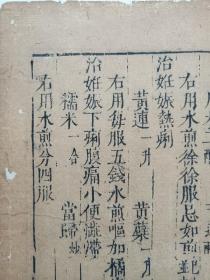 右用水煎徐徐服忌如前
治妊娠熱痢
黄連一升 黄蘗一升
右用每服五錢水煎嘔加橘
治妊娠下痢腹痛小便澁滯
糯米一合 當歸炒
右用水煎分四服